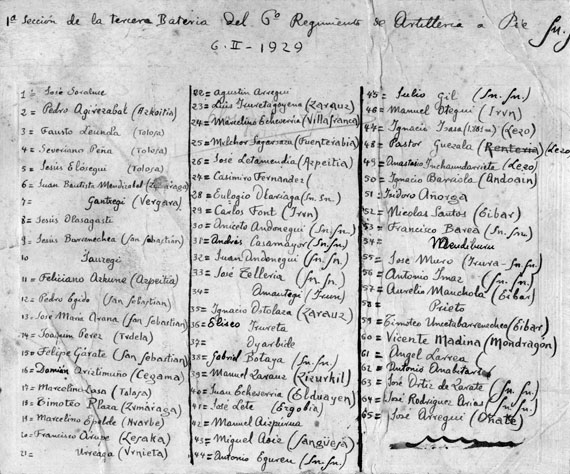 1ª Sección de la tercera Bateria del 6º Regimiento de Artilleria a Pie Sn. S
6-II-1929
1= José Soraluce
2= Pedro Agirezabal (Azkoitia)
3= Fausto Leunda (Tolosa)
4= Severiano Peña (Tolosa)
5= Jesús Elosegui (Tolosa)
6= Juan Bautista Mendizabal (Zumaraga)
7= Gantxegi (Vergara)
8= Jesús Olasagasti
9= Jesús Barrenechea (San Sebastián)
10 Jauregi
11= Feliciano Azkune (Azpeitia)
12= Pedro Egido (San Sebastian)
13= José Maria Arana (San Sebastian)
14= Joaquim Perez (Tudela)
15= Felipe Gárate (San Sebastian)
16= Domián Ariztimuño (Cegama)
17= Marcelino Lasa (Tolosa)
18= Timoteo Plaza (Zumáraga)
19= Marcelino Epelde (Nvarbe)
20= Francisco Aruse (Lesaka)
21= Urreaga (Vrnieta)
22= Agustin Arregui
23= Luis Iruretagoyena (Zarauz)
24= Marcelino Echeverria (Villafranca)
25= Melchor Sagarzazu (Fuenterabia)
26= José Letamendia (Azpeitia)
24= Casimiro Fernandez
28= Eulogio Oiariaga (Sn. Sn.)
29= Carlos Font (Irvn)
30= Aniceto Andonegui (Sn. Sn.)
31= Andrés Casamayor (Sn. Sn.)
32= Juan Andonegui (Sn. Sn.)
33= José Telleria (Sn. Sn.)
34= Amantegi (Irun)
35= Ignacio Ostolaza (Zarauz)
36= Eliseo Irureta
37= Oyarbide
38= Gabriel Botaya (Sn. Sn.)
39= Manuel Zarauz (Zizurkil)
40= Juan Echeverria (Elduayen)
41= José Lete (Ezgobia)
42= Manuel Aizpurua
43= Miguel Asiz (Sangüesa)
44= Antonio Eguren (Sn. Sn.)
45= Julio Gil (Sn. Sn.)
46= Manuel Otegui (Irvn)
44= Ignacio Isasa (1.785 m) (Lezo)
48= Pastor Guezala (Renteria) (Lezo)
49= Anastasio Inchaurrandieta (Lezo)
50= Ignacio Barraola (Andoain)
51 Isidoro Añorga
52= Nicolas Santos (Eibar)
53= Francisco Barea (Sn. Sn.)
54= Mendiburu
55= José Muro (Irura-Sn. Sn.)
56= Antonio Imaz (Sn. Sn.)
57= Aurelio Manchola (Eibar)
58= Prieto
59= Timoteo Uncetabarrenechea (Eibar)
60= Vicente Madina (Mondragón)
61= Angel Larrea
62= Antonio Anabitarte
63= José Ortiz de Zarate (Sn. Sn.)
64= José Rodriguez Arias (Sn. Sn.)
65= José Arregui (Oñate)